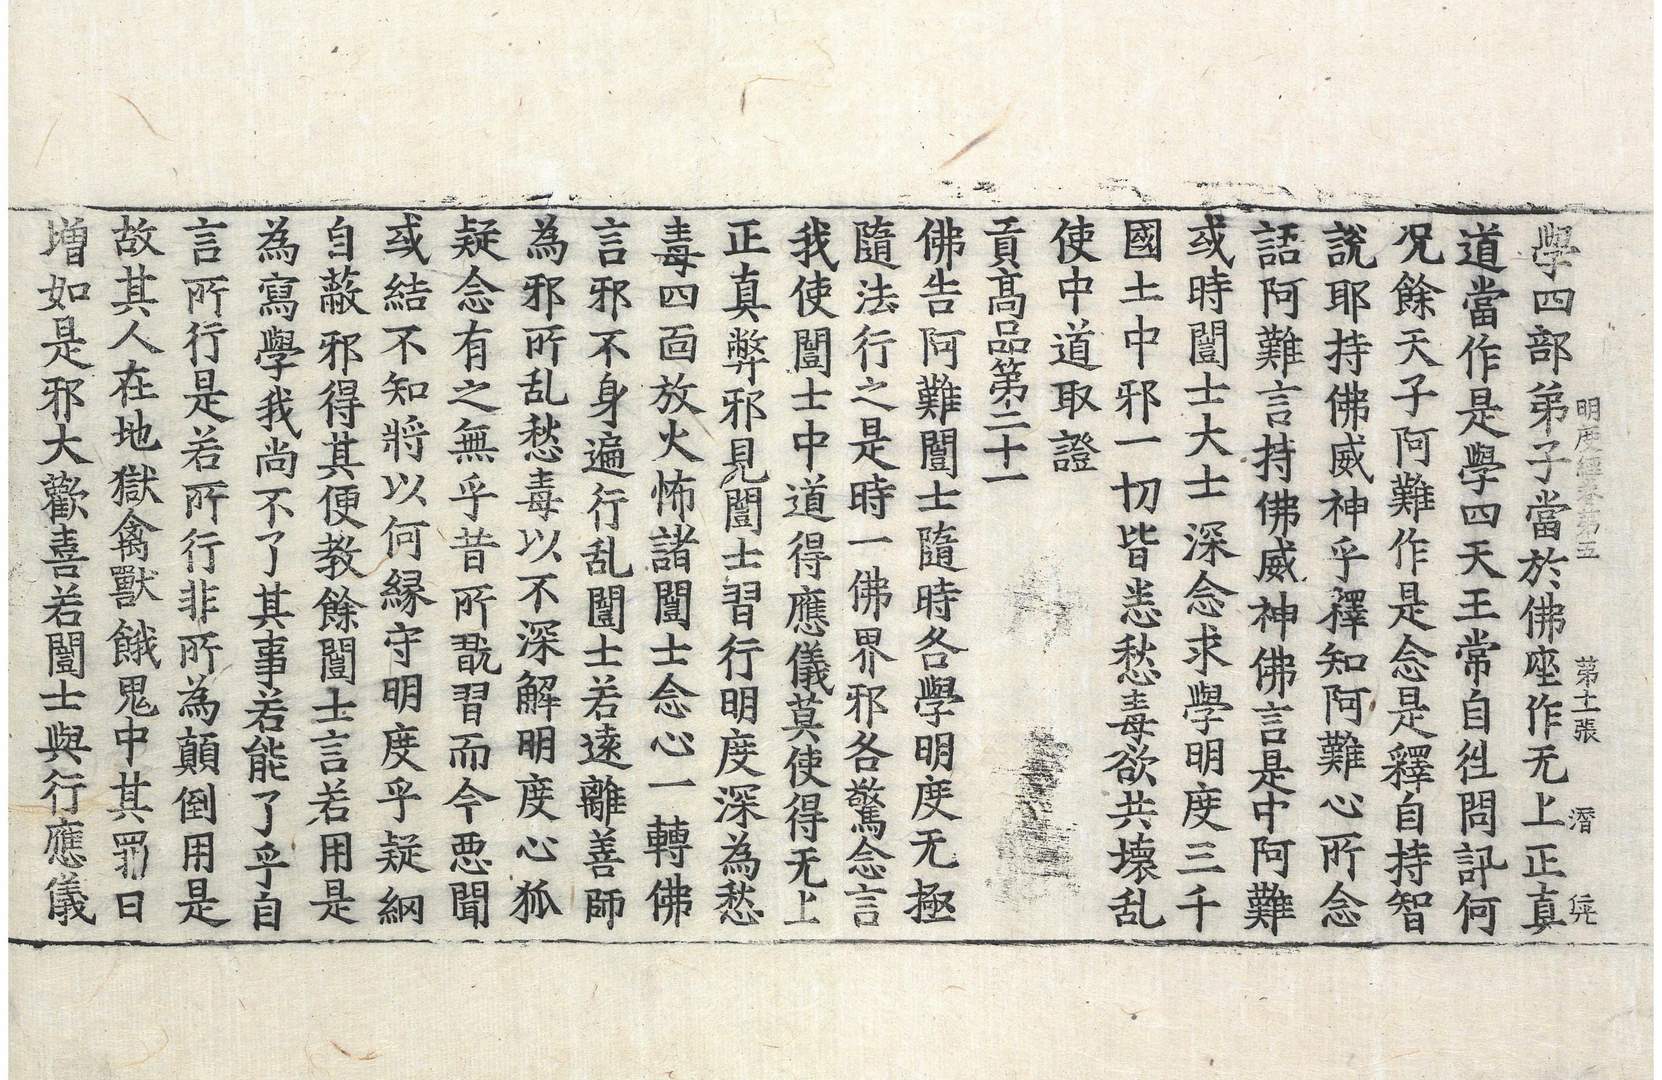 明度經卷第五 第十二張 潛 㡬
學四部弟子當於佛座作无上正真
道當作是學四天王常自徃問訊何
况餘天子阿難作是念是釋自持智
說耶持佛威神乎釋知阿難心所念
語阿難言持佛威神佛言是中阿難
或時闓士大士深念求學明度三千
國土中邪一切皆恙愁毒欲共壞乱
使中道取證
貢高品第二十一
佛告阿難闓士隨時各學明度无極
隨法行之是時一佛界邪各驚念言
我使闓士中道得應儀莫使得无上
正真弊邪見闓士習行明度深為愁
毒四面放火怖諸闓士念心一轉佛
言邪不身遍行乱闓士若遠離善師
為邪所乱愁毒以不深解明度心狐
疑念有之無乎昔所翫習而今惡聞
或結不知將以何緣守明度乎疑網
自蔽邪得其便教餘闓士言若用是
為寫學我尚不了其事若能了乎自
言所行是若所行非所為顛倒用是
故其人在地獄禽獸餓鬼中其罪日
増如是邪大歡喜若闓士與行應儀